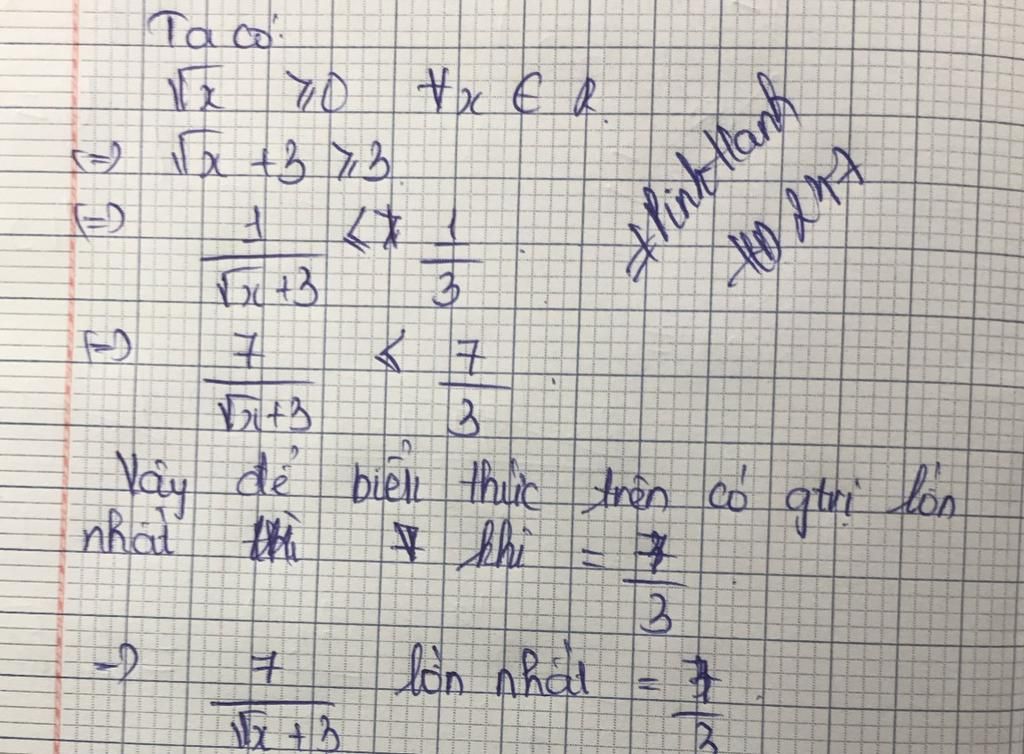 Ta có:
√x ⩾0 ∀x ∈ R.
(=) √x +3 ⩾3.
(=) 1/(√x +3) ⩽ 1/3.
(=) 7/(√x +3) ⩽ 7/3.
Vậy để biểu thức trên có gtrị lớn
nhất khi = 7/3
=) 7/(√x +3) lớn nhất = 7/3.